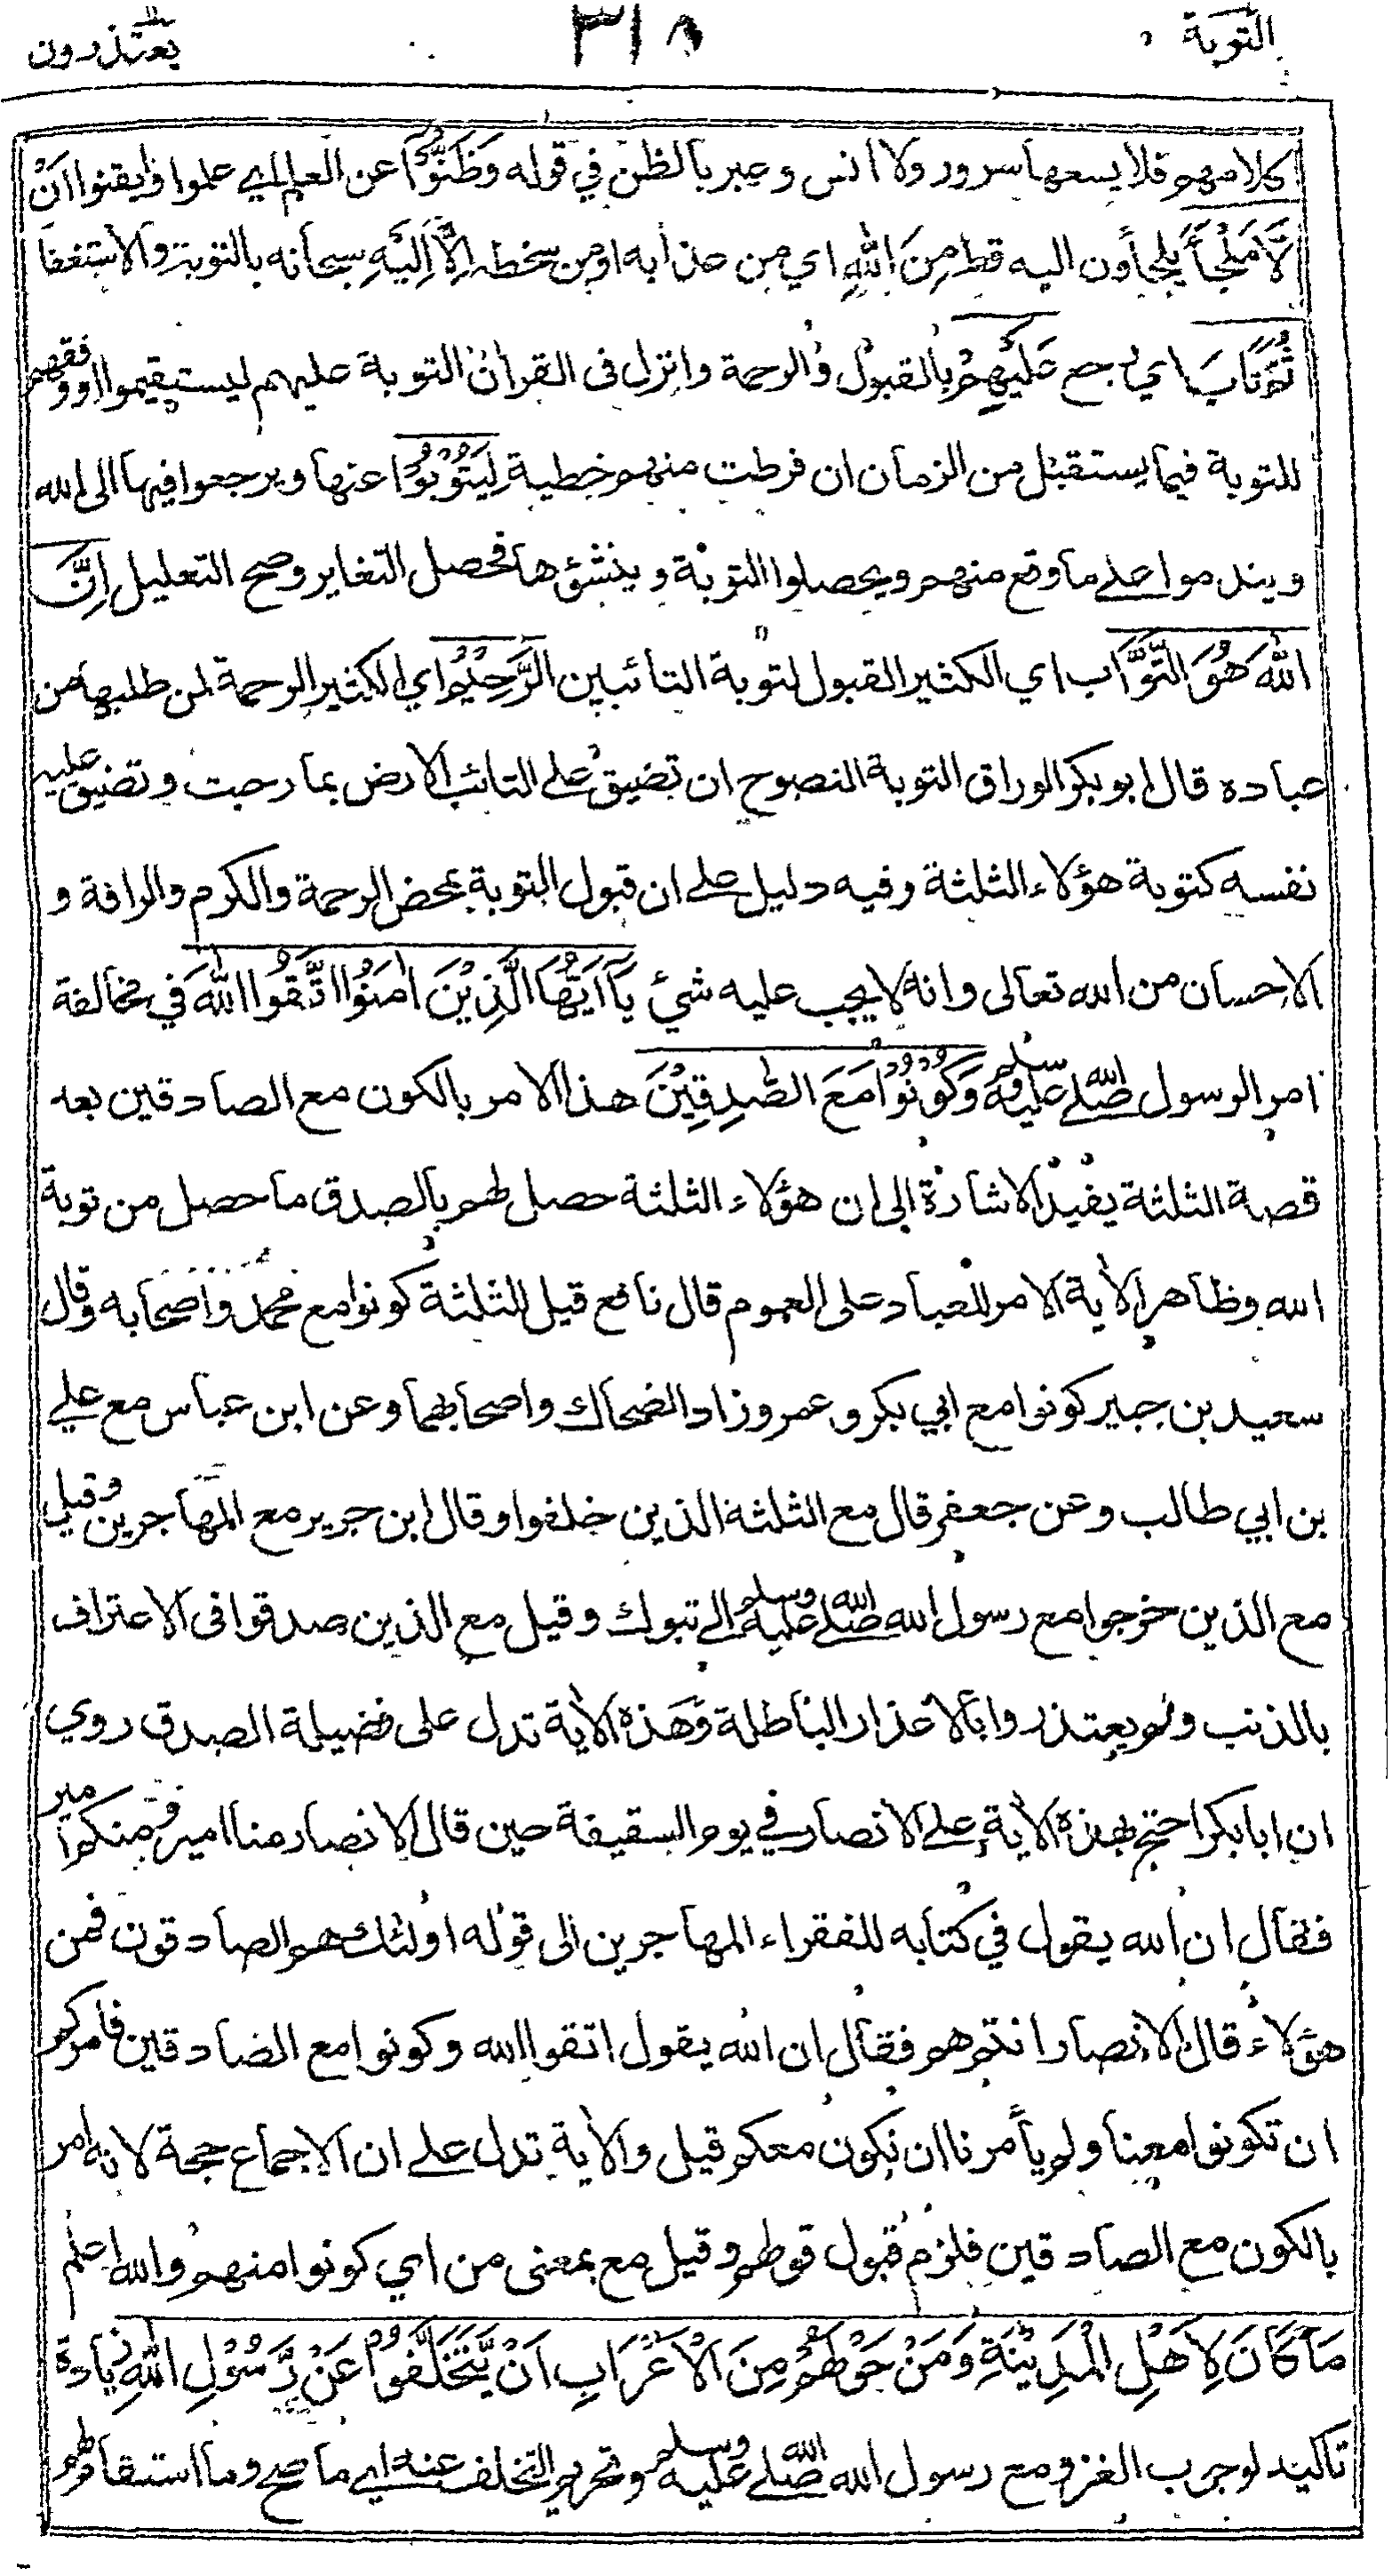 التوبة ٣١٨ يعتذرون
كلامهم فلا يسعها سرور ولا انس وعبر بالظن في قوله وَظَنُّوْا عن العلم اي علموا وايقنوا اَنْ
لَّا مَلْجَأَ يلجأون اليه قط مِنَ اللّٰهِ اي من عذابه او من سخطه اِلَّا اِلَيْهِ سبحانه بالتوبة والاستغفا
ثُمَّ تَابَ اي رجع عَلَيْهِمْ بالقبول والرحمة وانزل فى القرأن التوبة عليهم ليستقيموا او وفقهم
للتوبة فيما يستقبل من الزمان ان فرطت منهم خطية لِيَتُوْبُوْا عنها ويرجعوا فيها الى الله
ويندموا على ما وقع منهم ويحصلوا التوبة وينشؤها فحصل التغاير وصح التعليل اِنَّ
اللّٰهَ هُوَ التَّوَّابُ اي الكثير القبول لتوبة التائبين الرَّحِيْمُ اي الكثير الرحمة لمن طلبها من
عباده قال ابو بكر الوراق التوبة النصوح ان تضيق على التائب الارض بما رحبت وتضيق عليه
نفسه كتوبة هؤلاء الثلثة وفيه دليل على ان قبول التوبة بمحض الرحمة والكرم والرافة و
الاحسان من الله تعالى وانه لا يجب عليه شئ يَآ اَيُّهَا الَّذِيْنَ اٰمَنُوا اتَّقُوا اللّٰهَ في مخالفة
امر الرسول صلى الله عليه وسلم وَكُوْنُوْا مَعَ الصّٰدِقِيْنَ هذا الامر بالكون مع الصادقين بعد
قصة الثلثة يفيد الاشارة الى ان هؤلاء الثلثة حصل لهم بالصدق ما حصل من توبة
الله وظاهر الأية الامر للعباد على العموم قال نافع قيل للثلثة كونوا مع محمد واصحابه وقال
سعيد بن جبير كونوا مع ابي بكر وعمر وزاد الضحاك واصحابهما وعن ابن عباس مع علي
بن ابي طالب وعن جعفر قال مع الثلثة الذين خلفوا وقال ابن جرير مع المهاجرين وقيل
مع الذين خرجوا مع رسول الله صلى الله عليه وسلم الى تبوك وقيل مع الذين صدقوا فى الاعتراف
بالذنب ولم يعتذروا بالاعذار الباطلة وهذه الأية تدل على فضيلة الصدق روي
ان ابا بكر احتج بهذه الأية على الانصار في يوم السقيفة حين قال الانصار منا امير ومنكم امير
فقال ان الله يقول في كتابه للفقراء المهاجرين الى قوله اولئك هم الصادقون فمن
هؤلاء قال الانصار انتم هم فقال ان الله يقول اتقوا الله وكونوا مع الصادقين فامركم
ان تكونوا معنا ولم يأمرنا ان نكون معكم قيل والأية تدل على ان الاجماع حجة لانه امر
بالكون مع الصادقين فلزم قبول قولهم وقيل مع بمعنى من اي كونوا منهم والله اعلم
مَا كَانَ لِاَهْلِ الْمَدِيْنَةِ وَمَنْ حَوْلَهُمْ مِنَ الْاَعْرَابِ اَنْ يَّتَخَلَّفُوْا عَنْ رَّسُوْلِ اللّٰهِ زيادة
تاكيد لوجوب الغزو مع رسول الله صلى الله عليه وسلم وتحريم التخلف عنه اي ما صح وما استقام لهم